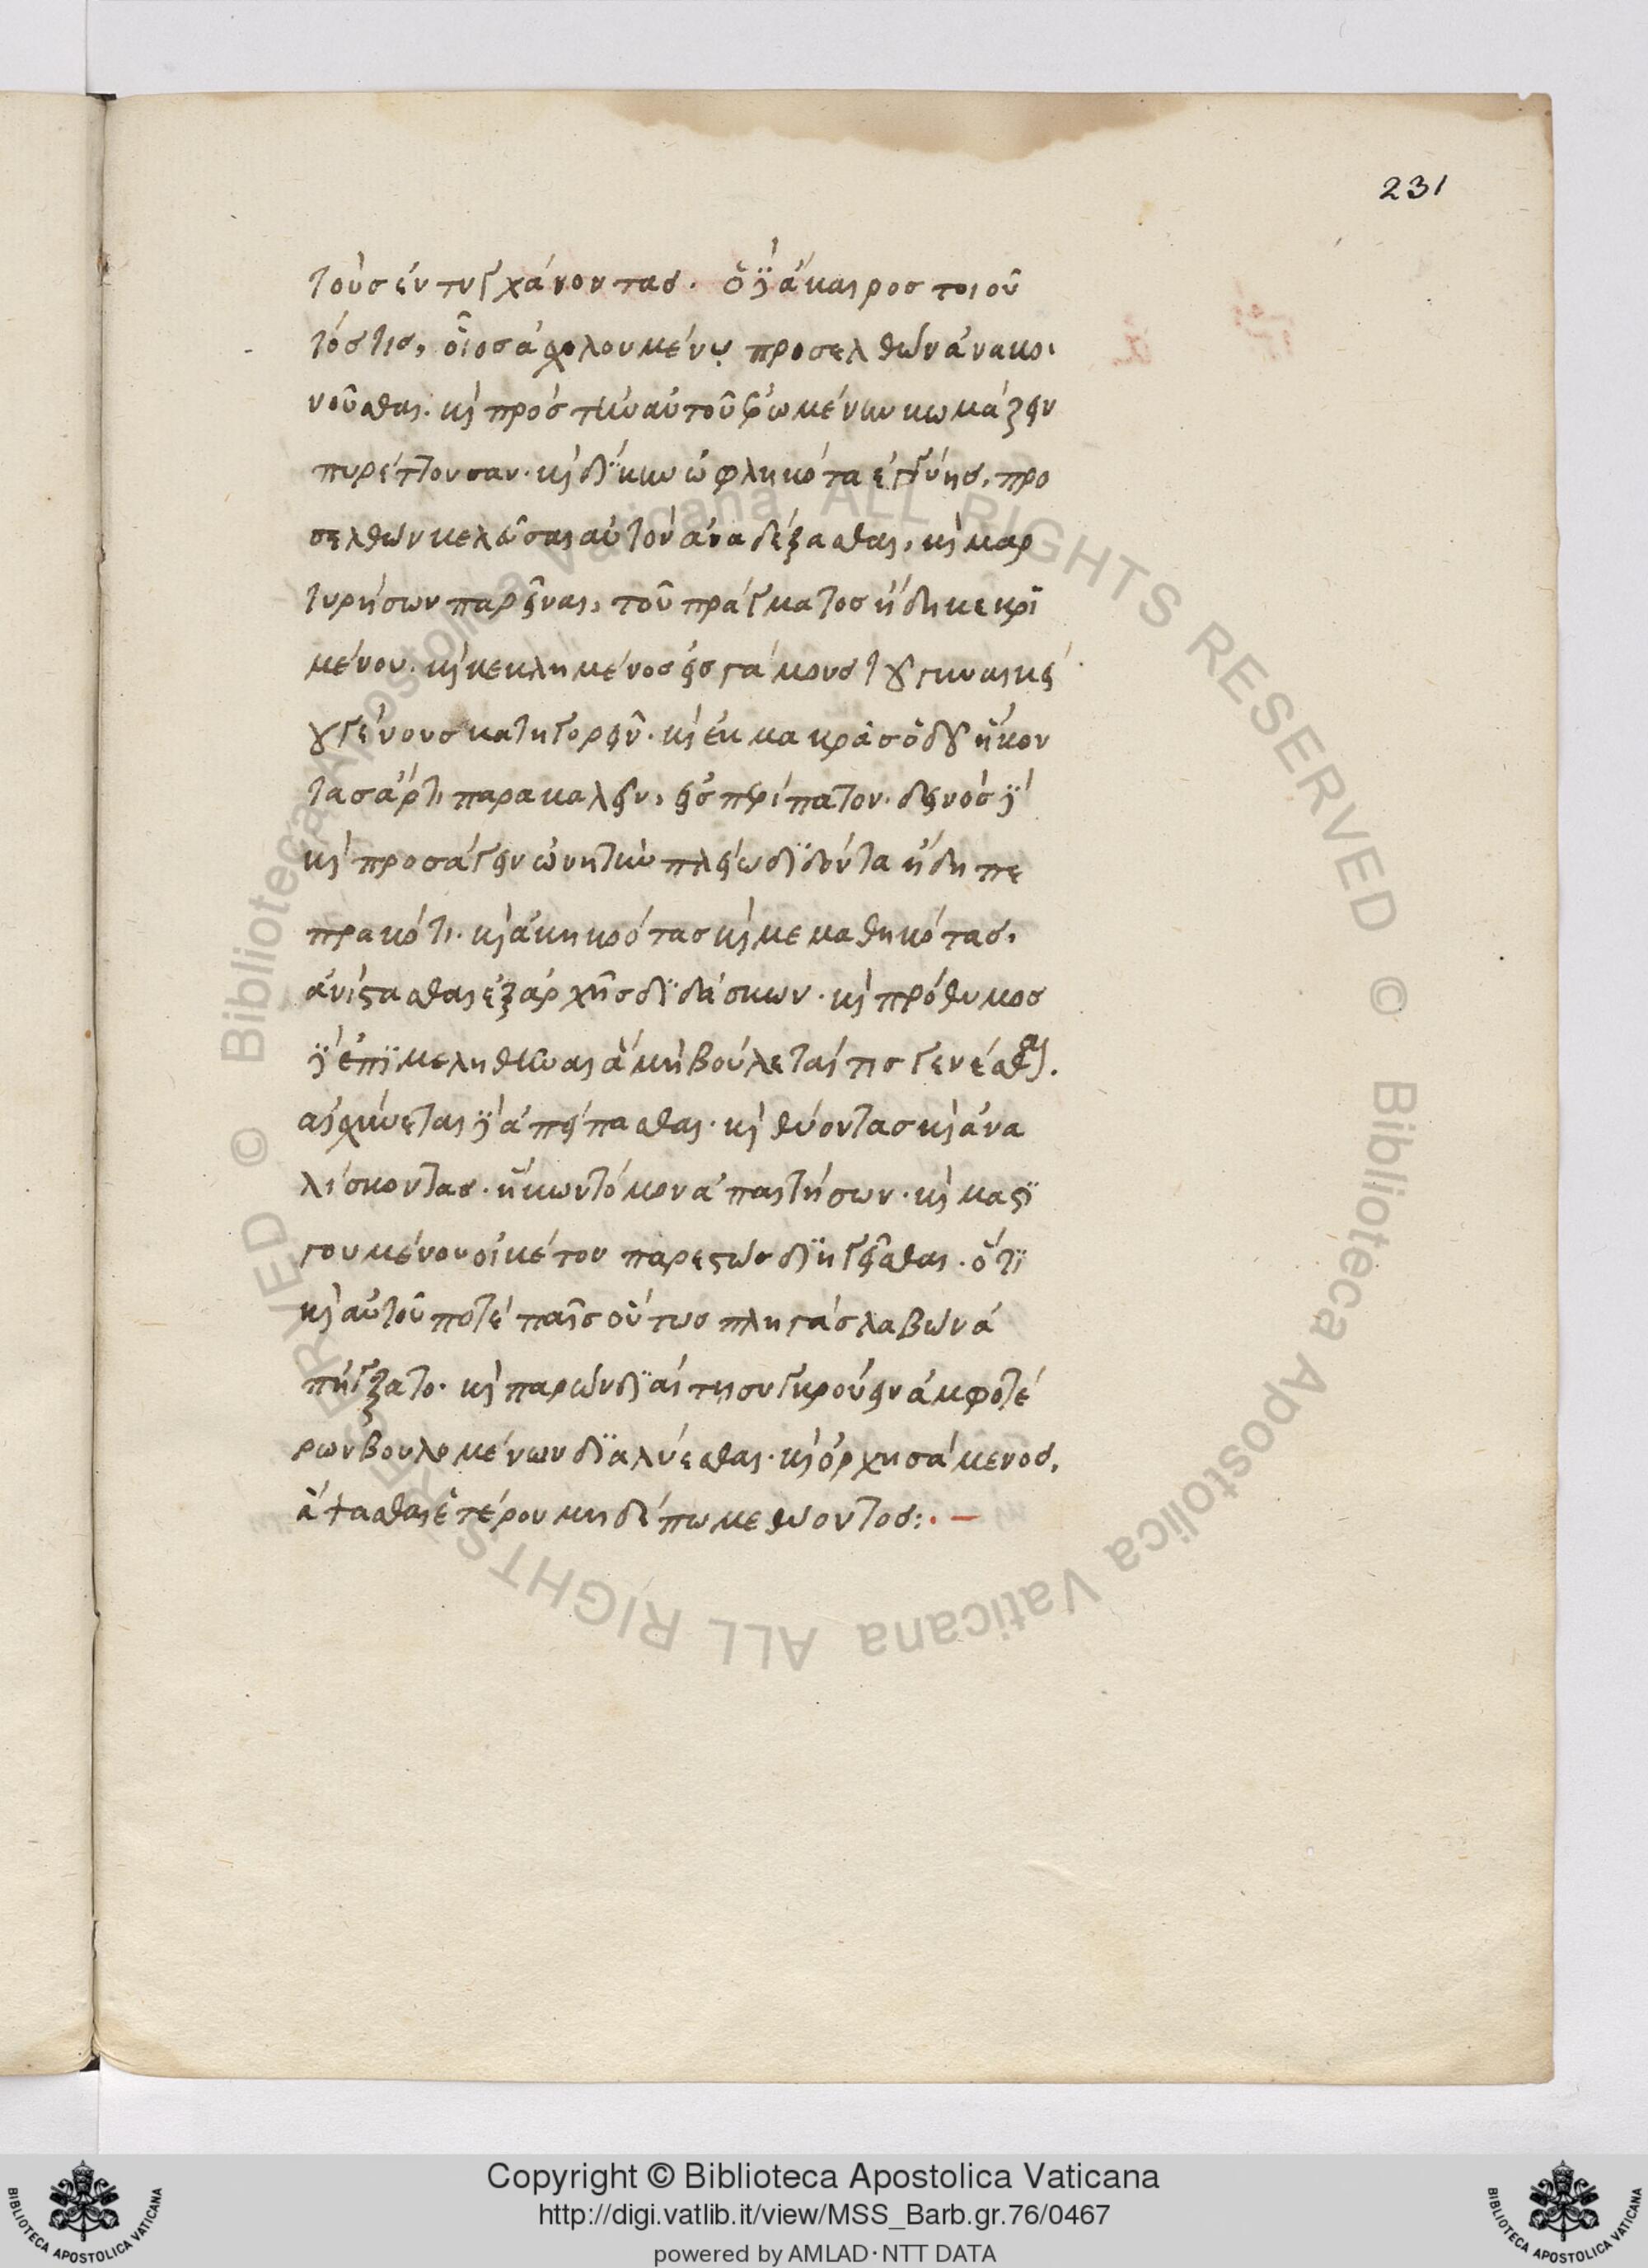 231
τοὺς ἐντυγχάνοντας. ὁ δὲ ἄκαιρος τοιοῦ
τός τις, οἷος ἀσχολουμένῳ προσελθὼν ἀνακοι
νοῦσθαι. καὶ πρὸς τὴν αὑτοῦ ἐρωμένην κωμάζειν
πυρέττουσαν. καὶ δίκην ὠφληκότα ἐγγύης, προ
σελθὼν κελεῦσαι αὐτὸν ἀναδέξασθαι, καὶ μαρ
τυρήσων παρεῖναι, τοῦ πράγματος ἤδη κεκρι
μένου. καὶ κεκλημένος εἰς γάμους τοῦ γυναικεί
ου γένους κατηγορεῖν. καὶ ἐκ μακρᾶς ὁδοῦ ἥκον
τας ἄρτι παρακαλεῖν, εἰς περίπατον. δεινὸς δὲ
καὶ προσάγειν ὠνητὴν πλείω διδόντα ἤδη πε
πρακότι. καὶ ἀκηκοότας καὶ μεμαθηκότας,
ἀνίστασθαι ἐξ ἀρχῆς διδάσκων. καὶ πρόθυμος
δὲ ἐπιμεληθῆναι ἃ μὴ βούλεταί τις γενέσθαι.
αἰσχύνεται δὲ ἀπείπασθαι. καὶ θύοντας καὶ ἀνα
λίσκοντας. ἥκων τόκον ἀπαιτήσων. καὶ μαστι
γουμένου οἰκέτου παρεστὼς διηγεῖσθαι. ὅτι
καὶ αὐτοῦ ποτὲ παῖς οὕτως πληγὰς λαβὼν ἀ
πήγξατο. καὶ παρὼν διαίτῃ συγκρούειν ἀμφοτέ
ρων βουλομένων διαλύεσθαι. καὶ ὀρχησάμενος,
ἅψασθαι ἑτέρου μηδέπω μεθύοντος:.
© Biblioteca Apostolica Vaticana ALL RIGHTS RESERVED © Biblioteca Apostolica Vaticana ALL RIGHTS RESERVED
Copyright © Biblioteca Apostolica Vaticana
http://digi.vatlib.it/view/MSS_Barb.gr.76/0467
powered by AMLAD·NTT DATA
BIBLIOTECA APOSTOLICA VATICANA
BIBLIOTECA APOSTOLICA VATICANA